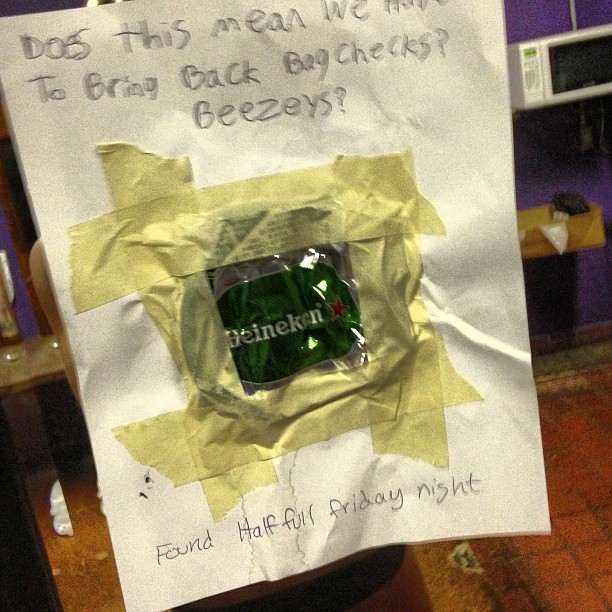 Dos this mean we have
To Bring Back Bag checks?
Beezeys?
Heineken
Found Half full friday night